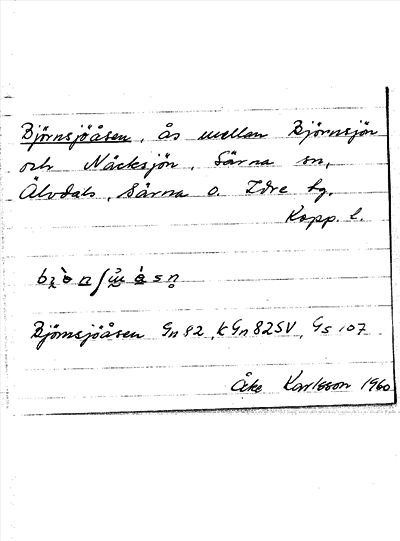 Björnsjöåsen, ås mellan Björnsjön
och Näcksjön, Särna sn,
Älvdals, Särna o. Idre tg.
Kopp. l.
Björnsjöåsen Gn 82, KGn82SV, Gs 107
Åke Karlsson 1960